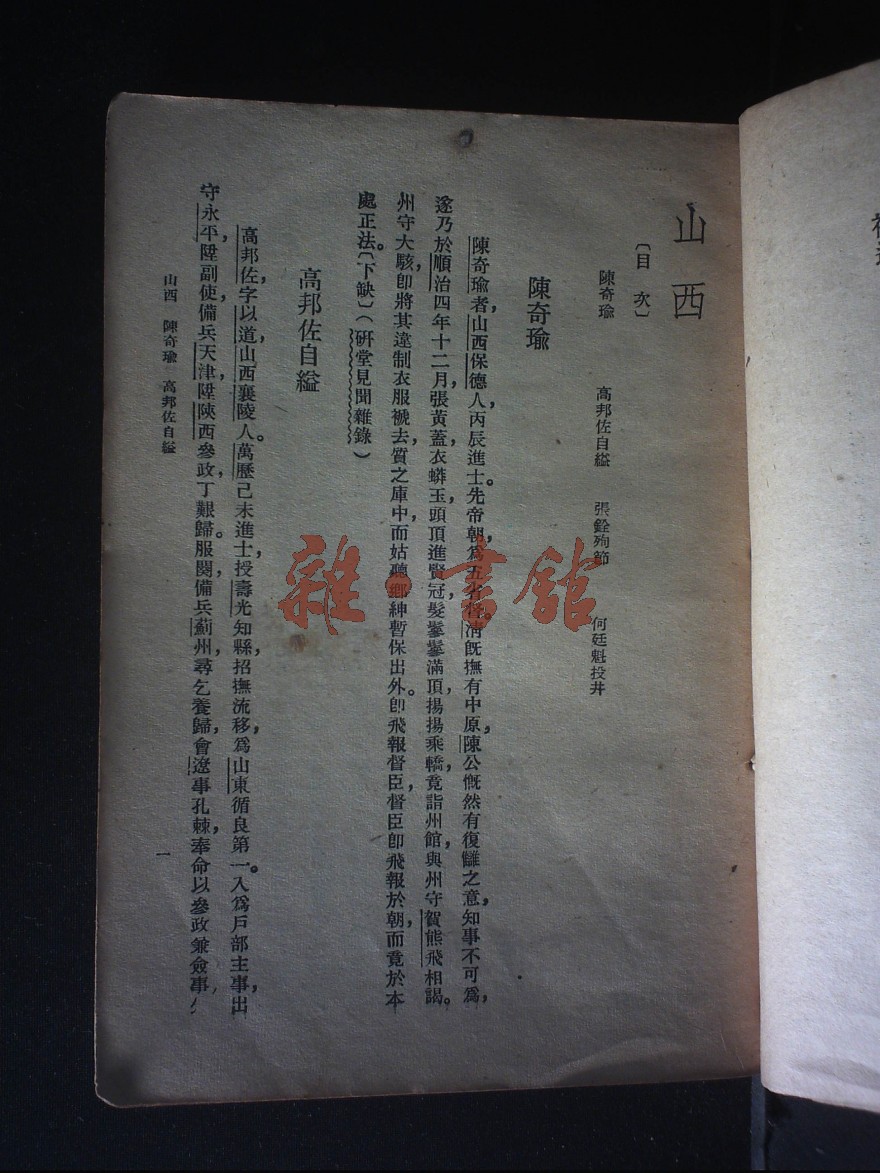 山西
〔目次〕
陳奇瑜　高邦佐自縊　張銓殉節　何廷魁投井
陳奇瑜
陳奇瑜者，山西保德人，丙辰進士。先帝朝，爲五省督。清既撫有中原，陳公慨然有復讎之意，知事不可爲，
遂乃於順治四年十二月，張黃蓋，衣蟒玉，頭頂進賢冠，髮鬖鬖滿頂，揚揚乘轎，竟詣州館，與州守賀熊飛相謁。
州守大駭，卽將其違制衣服褫去，質之庫中，而姑聽鄉紳暫保出外。卽飛報督臣，督臣卽飛報於朝，而竟於本
處正法。〔下缺〕（硏堂見聞雜錄）
高邦佐自縊
高邦佐，字以道，山西襄陵人。萬歷己未進士，授壽光知縣，招撫流移，爲山東循良第一。入爲戶部主事，出
守永平，陞副使，備兵天津，陞陝西參政，丁艱歸。服闋，備兵薊州，尋乞養歸，會遼事孔棘，奉命以參政兼僉事，
山西　陳奇瑜　高邦佐自縊
一
雜·書館